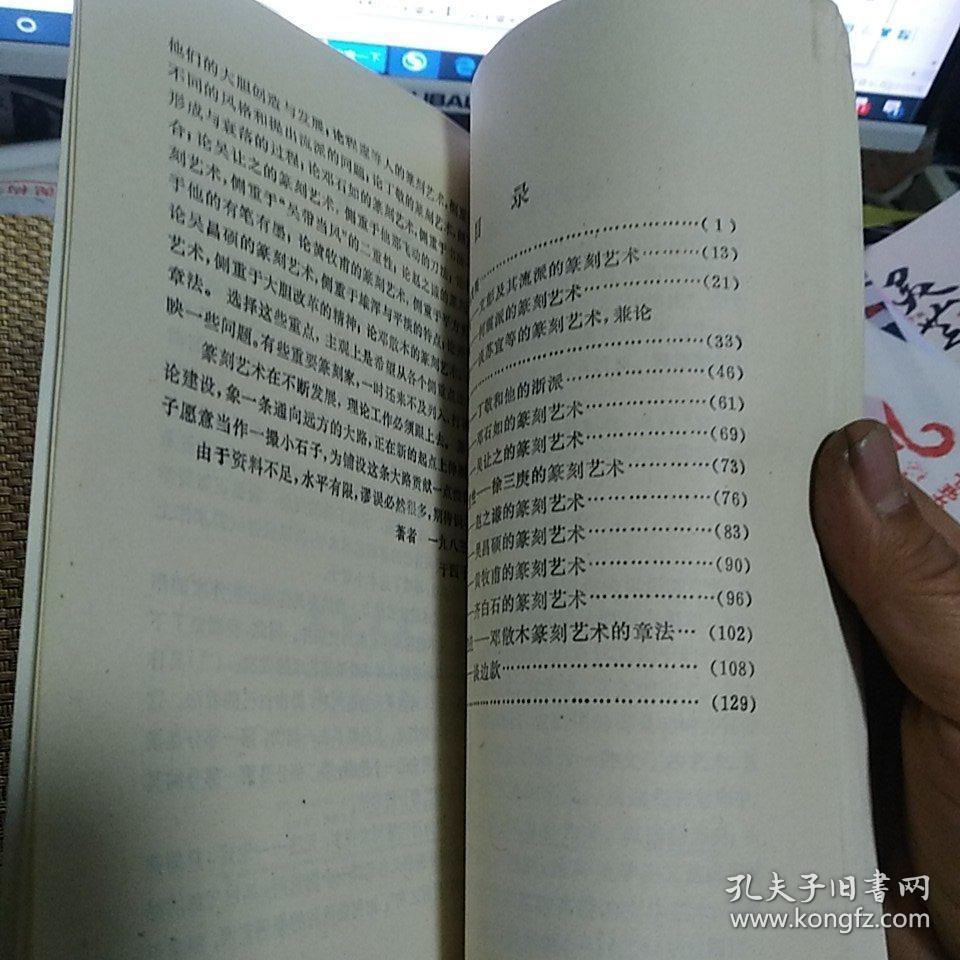 他们的大胆创造与发展；论程邃等人的篆刻艺术，侧重
不同的风格和提出流派的问题；论丁敬的篆刻艺术，侧重于
形成与衰落的过程；论邓石如的篆刻艺术，侧重于
合；论吴让之的篆刻艺术，侧重于他那飞动的刀法；
刻艺术，侧重于“吴带当风”的二重性；论赵之谦的篆刻
于他的有笔有墨；论黄牧甫的篆刻艺术，侧重于平方
论吴昌硕的篆刻艺术，侧重于雄浑与平棱的特点；论
艺术，侧重于大胆改革的精神；论邓散木的篆刻艺术，
章法。 选择这些重点，主观上是希望从各个侧重点
映一些问题。有些重要篆刻家，一时还来不及列入，
篆刻艺术在不断发展，理论工作必须跟上去。
论建设，象一条通向远方的大路，正在新的起点上伸
子愿意当作一撮小石子，为铺设这条大路贡献一点
由于资料不足，水平有限，谬误必然很多，期待
著者 一九八三
于四
目 录
……(1)
文彭及其流派的篆刻艺术……(13)
何震派的篆刻艺术……(21)
谈苏宣等的篆刻艺术，兼论
……(33)
丁敬和他的浙派……(46)
邓石如的篆刻艺术……(61)
吴让之的篆刻艺术……(69)
—徐三庚的篆刻艺术……(73)
—赵之谦的篆刻艺术……(76)
—吴昌硕的篆刻艺术……(83)
—黄牧甫的篆刻艺术……(90)
—齐白石的篆刻艺术……(96)
—邓散木篆刻艺术的章法…(102)
—谈边款……(108)
……(129)
孔夫子旧書网
www.kongfz.com